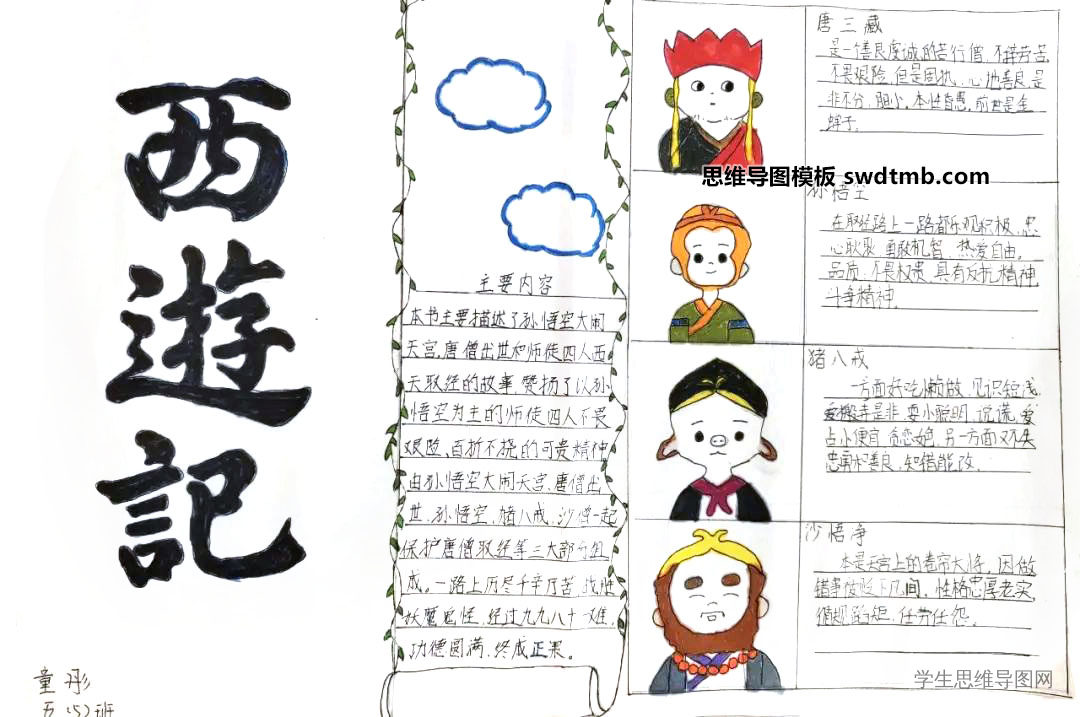 西遊記
童彤
五(5)班
主要内容
本书主要描述了孙悟空大闹
天宫,唐僧出世和师徒四人西
天取经的故事,赞扬了以孙
悟空为主的师徒四人不畏
艰险、百折不挠的可贵精神
由孙悟空大闹天宫、唐僧出
世、孙悟空、猪八戒、沙僧一起
保护唐僧取经等三大部分组
成。一路上历尽千辛万苦,战胜
妖魔鬼怪,经过九九八十一难,
功德圆满,终成正果。
唐三藏
是一个善良虔诚的苦行僧,不辞劳苦,
不畏艰险,但是固执、心地善良,是
非不分,胆小,本性自愚,前世是金
蝉子。
思维导图模板 swdtmb.com
孙悟空
在取经路上一路都乐观积极,忠
心耿耿,勇敢机智,热爱自由。
品质:不畏权贵,具有反抗精神,
斗争精神。
猪八戒
一方面好吃懒做,见识短浅,
搬弄是非,耍小聪明,说谎,爱
占小便宜,贪恋女色,另一方面又不失
忠勇和善良,知错能改。
沙悟净
本是天宫上的卷帘大将,因做
错事被贬下凡间,性格忠厚老实,
循规蹈矩,任劳任怨。
学生思维导图网